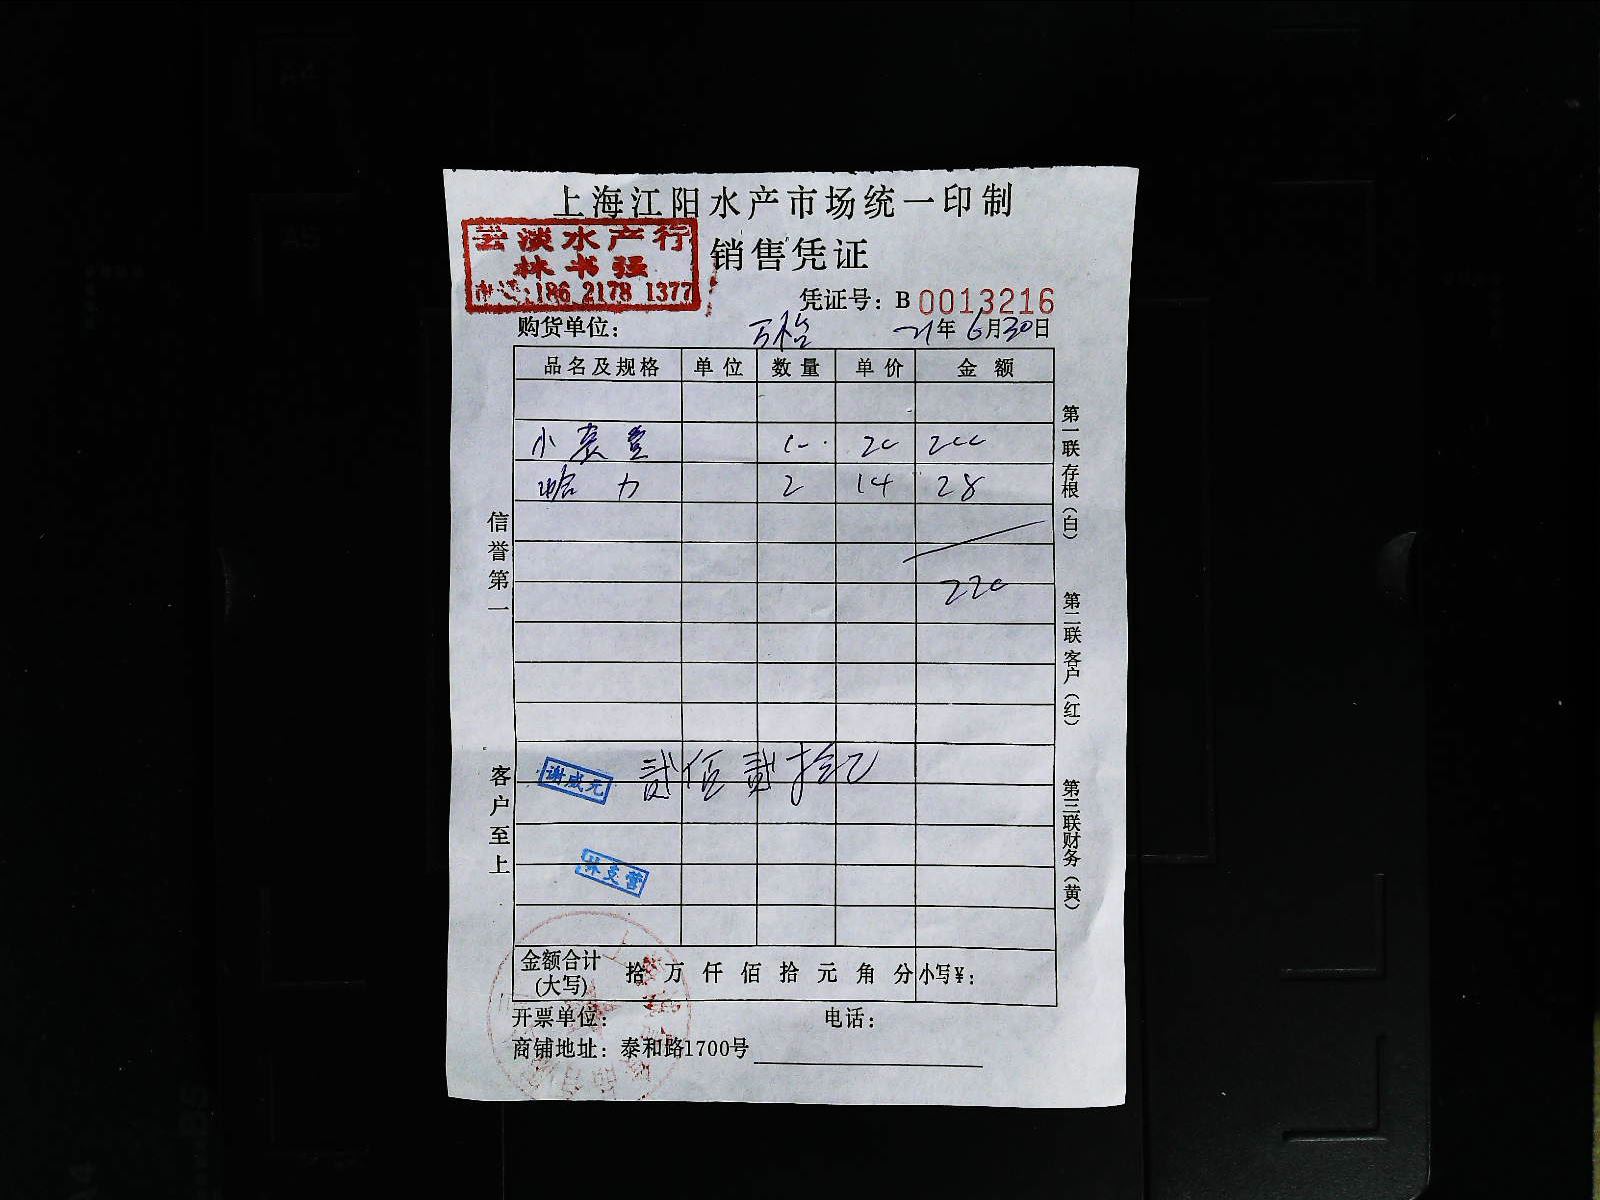 上海江阳水产市场统一印制
淡水产行
林书强
电话:186 2178 1377
销售凭证
凭证号: B 0013216
购货单位: 万裕 21年6月30日
品名及规格 单位 数量 单价 金额
小 20 200
哈力 2 14 28
220
贰佰贰拾元
谢成元
信誉第一
客户至上
第一联存根(白)
第二联客户(红)
第三联财务(黄)
金额合计(大写) 拾 万 仟 佰 拾 元 角 分 小写¥:
开票单位: 电话:
商铺地址: 泰和路1700号